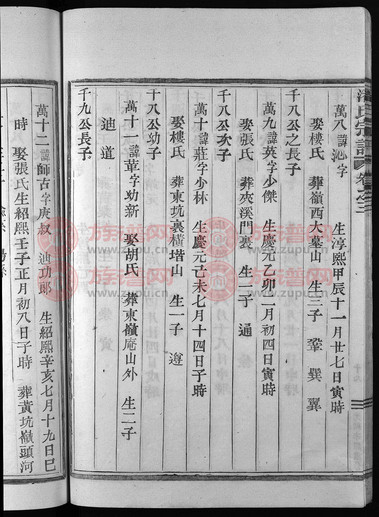 萬八諱沲字 生淳熙甲辰十一月廿七日寅時
娶樓氏 葬嶺西大墓山 生三子 鞏 巽 翼
千八公之長子
萬九諱英字少傑 生慶元乙卯二月初四日寅時
娶張氏 葬夾溪門裏 生一子 通
千八公次子
萬十諱莊字少林 生慶元己未七月十四日子時
娶樓氏 葬東坑裏橫塔山 生一子 遵
千八公幼子
萬十一諱華字幼新 娶胡氏 葬東嶺庵山外 生二子
迪 道
千九公長子
萬十二諱師古字庚叔 迪功郎 生紹熙辛亥七月十九日巳
時 娶張氏生紹熙壬子正月初八日子時 葬黃坑嶺頭河
氏宗譜 卷之三
族谱网
www.zupu.cn